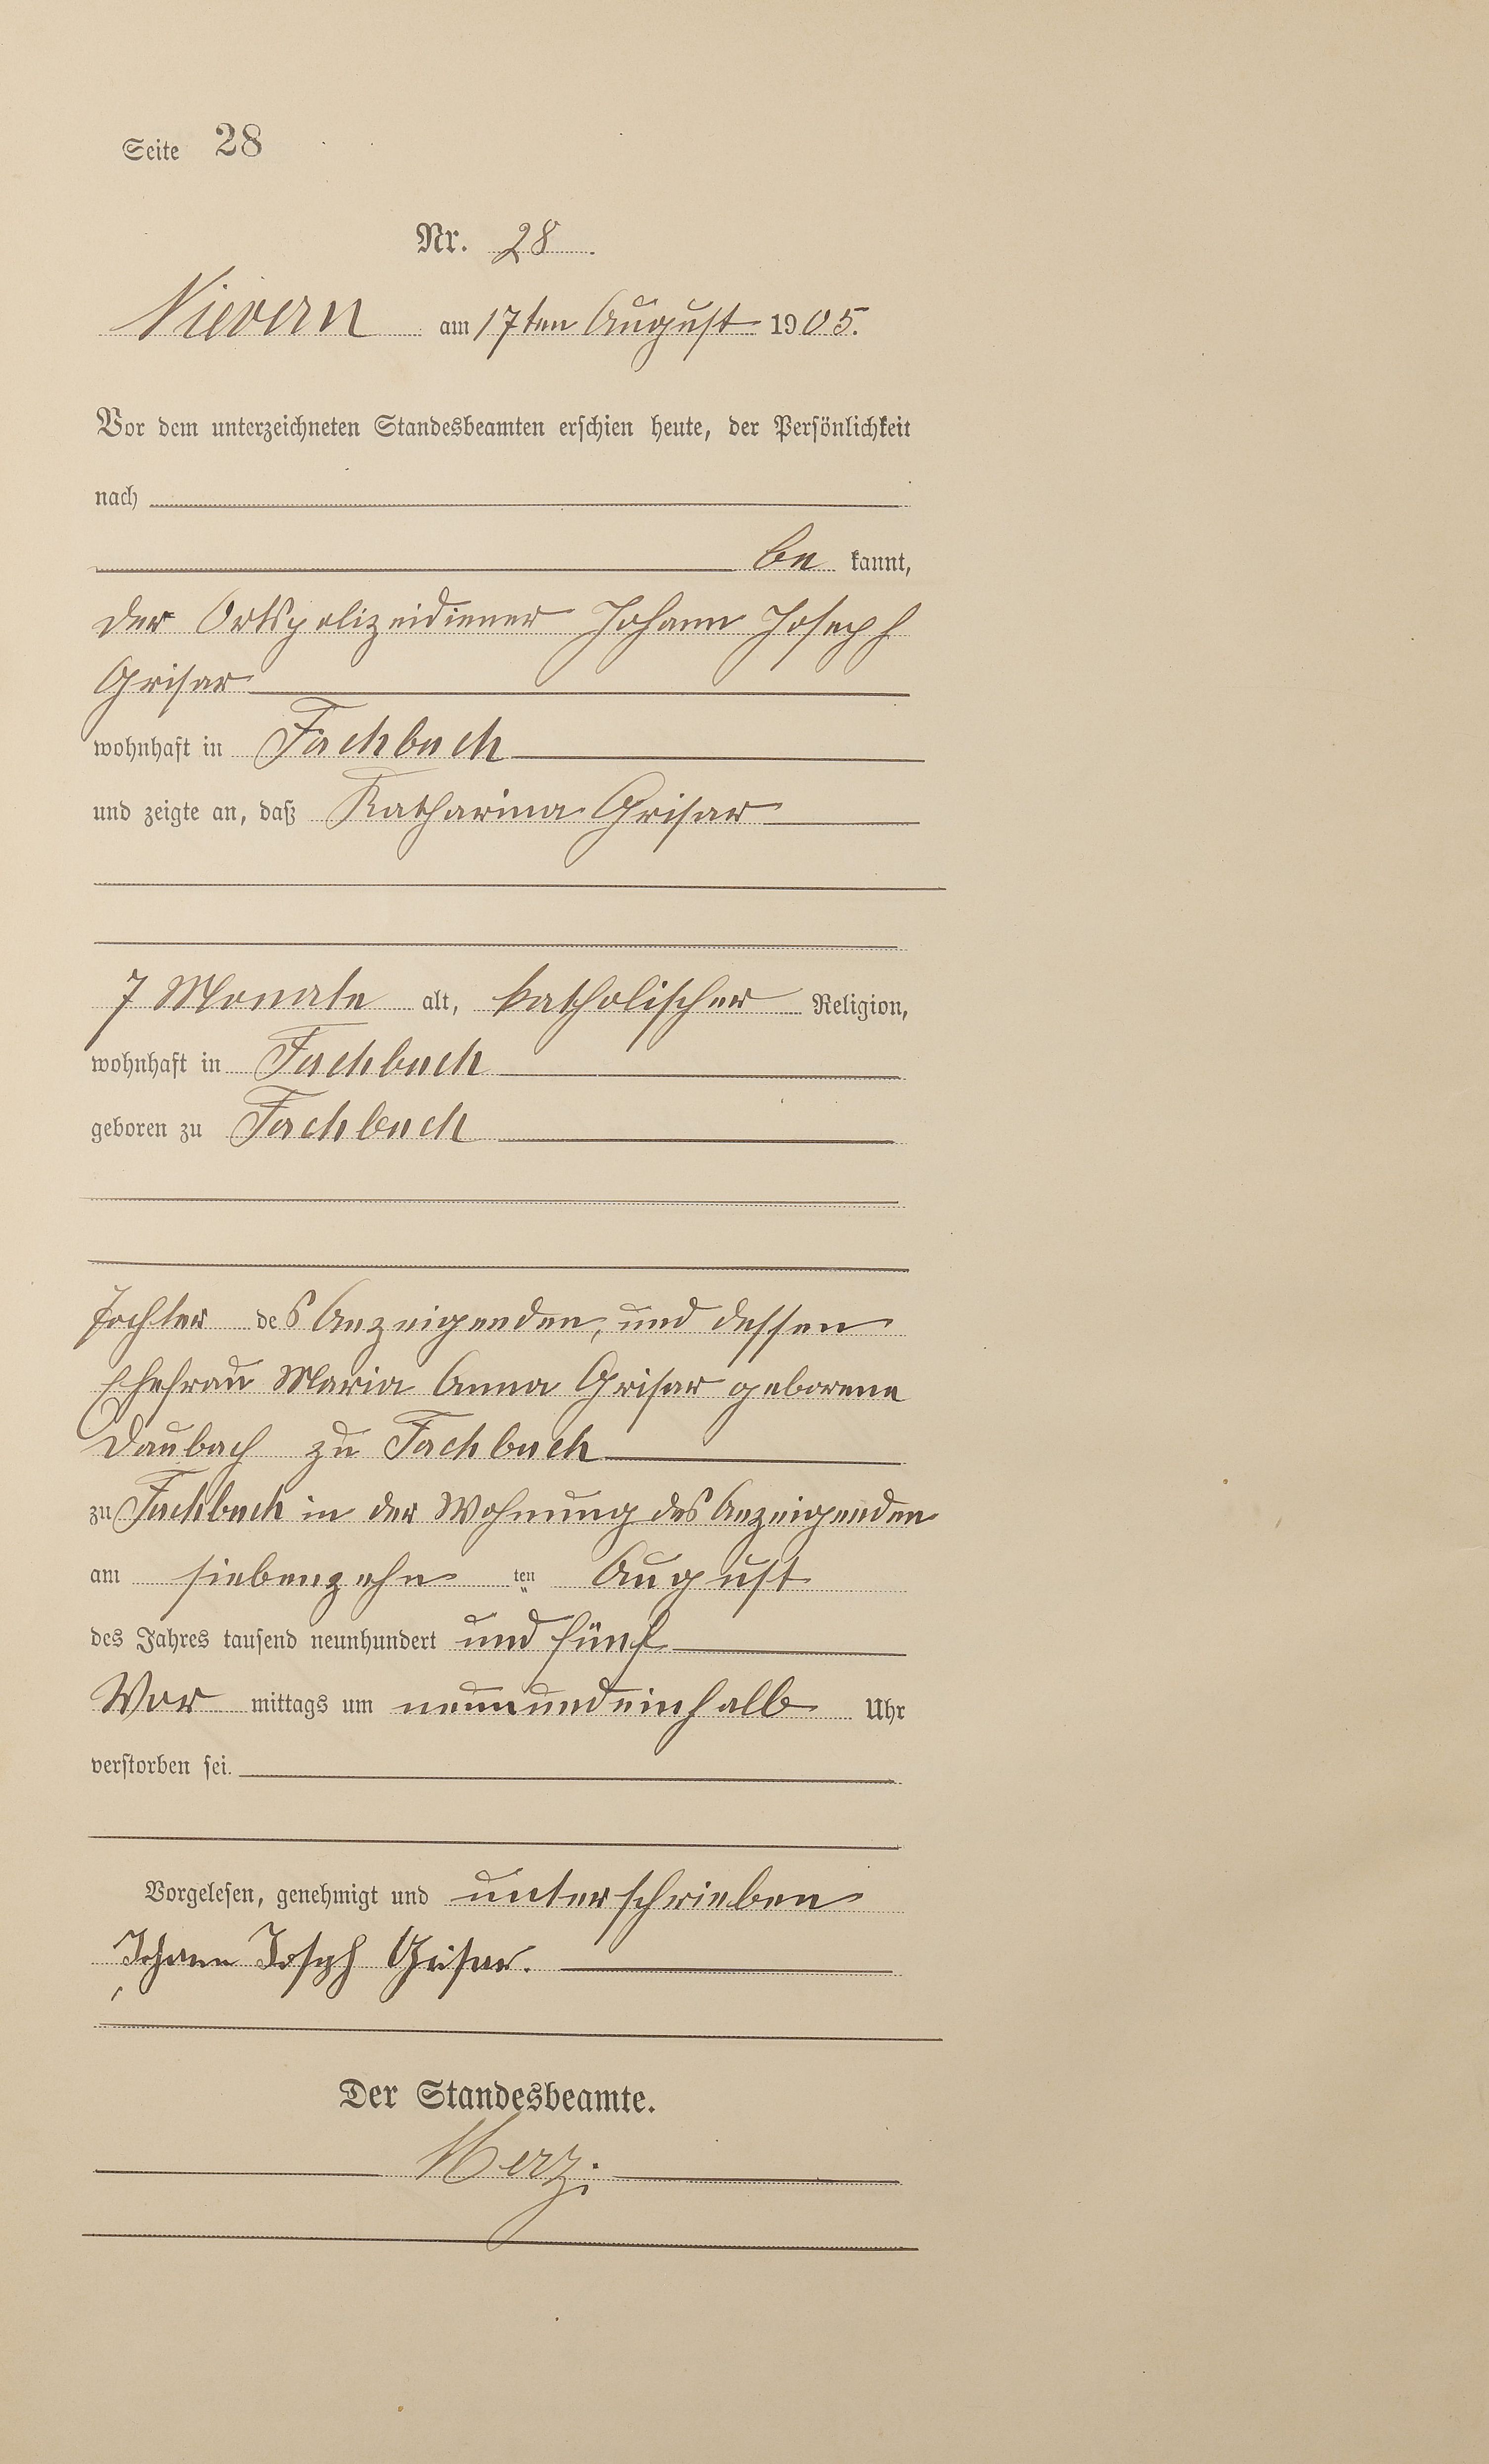 Seite 28
Nr. 28.
Nievern am 17ten August 1905.
Vor dem unterzeichneten Standesbeamten erschien heute, der Persönlichkeit
nach
be kannt,
der Ortspolizeidiener Johann Joseph
Grisar
wohnhaft in Fachbach
und zeigte an, daß Katharina Grisar
7 Monate alt, katholischer Religion,
wohnhaft in Fachbach
geboren zu Fachbach
Tochter des Anzeigenden, und dessen
Ehefrau Maria Anna Grisar geborene
Daubach zu Fachbach
zu Fachbach in der Wohnung des Anzeigenden
am siebenzehn ten August
des Jahres tausend neunhundert und fünf
Vor mittags um neunundeinhalb Uhr
verstorben sei.
Vorgelesen, genehmigt und unterschrieben
Johann Joseph Grisar.
Der Standesbeamte.
Merz.